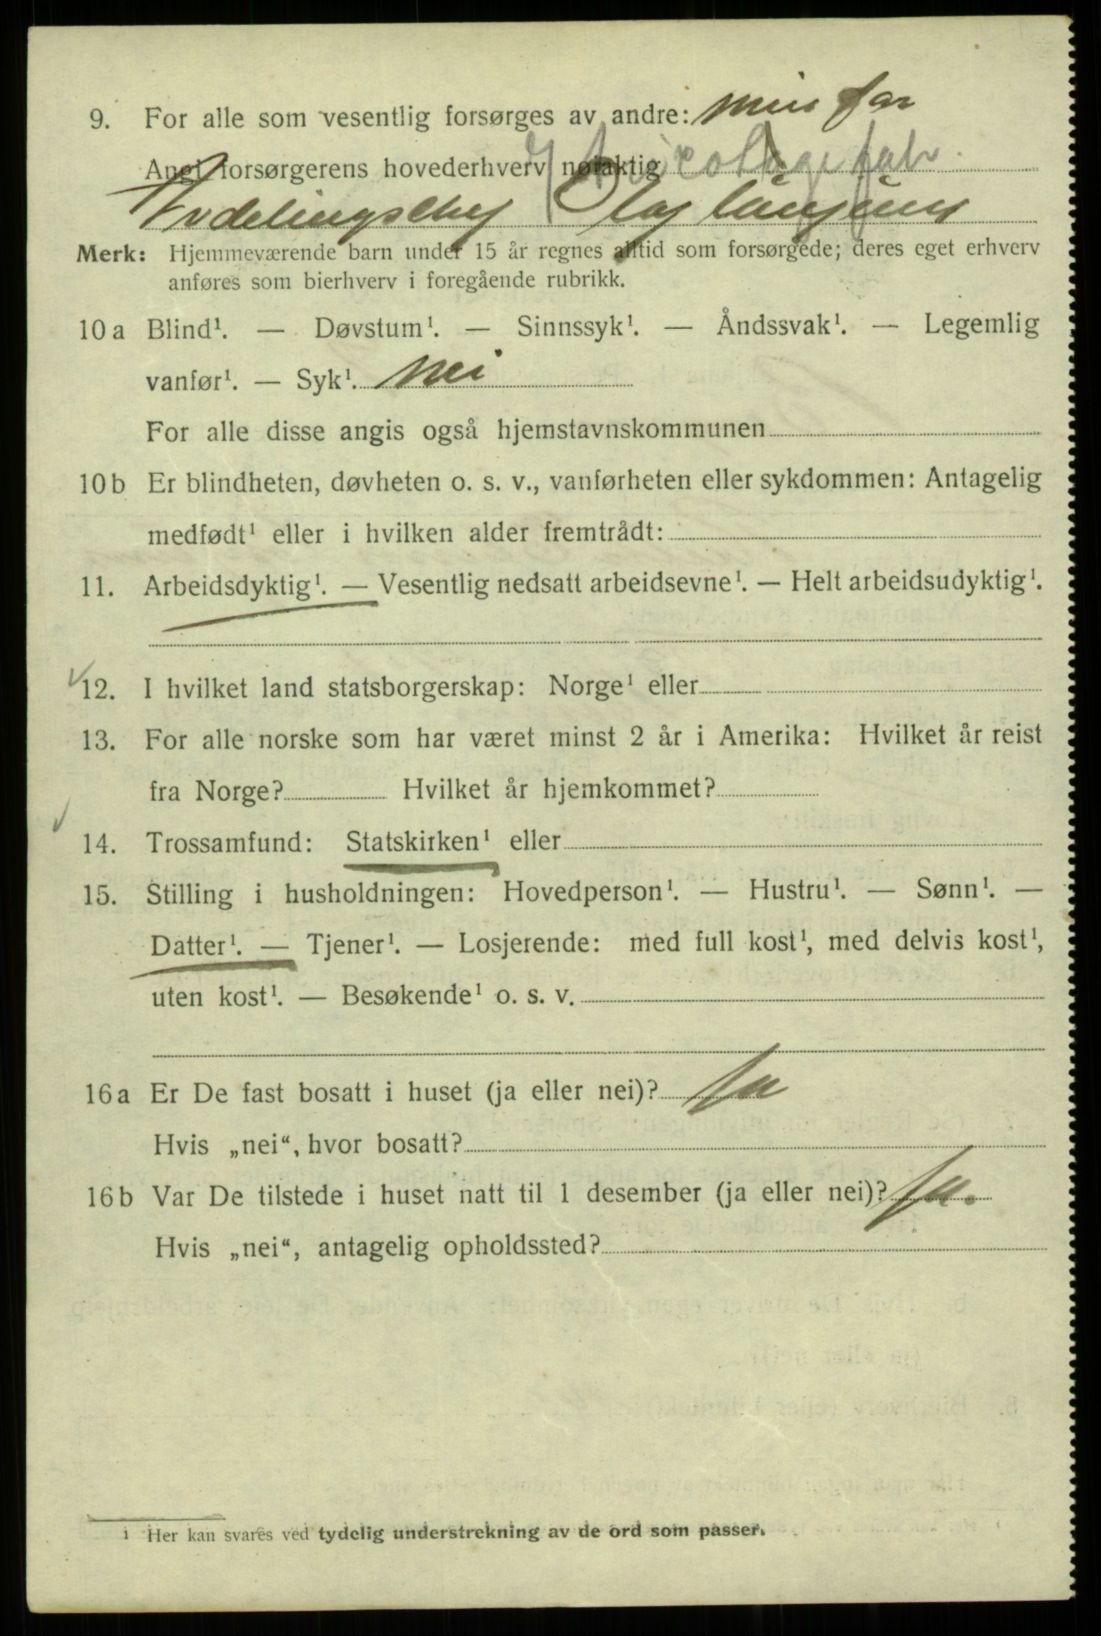 9. For alle som vesentlig forsørges av andre: min far
Angi forsørgerens hovederhverv nøiaktig Tricotagefabr.
Avdelingschef Olaf
Merk: Hjemmeværende barn under 15 år regnes alltid som forsørgede; deres eget erhverv
anføres som bierhverv i foregående rubrikk.
10 a Blind¹. — Døvstum¹. — Sinnssyk¹. — Åndssvak¹. — Legemlig
vanfør¹. — Syk¹. Nei
For alle disse angis også hjemstavnskommunen
10 b Er blindheten, døvheten o. s. v., vanførheten eller sykdommen: Antagelig
medfødt¹ eller i hvilken alder fremtrådt:
11. Arbeidsdyktig¹. — Vesentlig nedsatt arbeidsevne¹. — Helt arbeidsudyktig¹.
12. I hvilket land statsborgerskap: Norge¹ eller
13. For alle norske som har været minst 2 år i Amerika: Hvilket år reist
fra Norge? Hvilket år hjemkommet?
14. Trossamfund: Statskirken¹ eller
15. Stilling i husholdningen: Hovedperson¹. — Hustru¹. — Sønn¹. —
Datter¹. — Tjener¹. — Losjerende: med full kost¹, med delvis kost¹,
uten kost¹. — Besøkende¹ o. s. v.
16 a Er De fast bosatt i huset (ja eller nei)? Ja
Hvis „nei“, hvor bosatt?
16 b Var De tilstede i huset natt til 1 desember (ja eller nei)? Ja.
Hvis „nei“, antagelig opholdssted?
1 Her kan svares ved tydelig understrekning av de ord som passer.